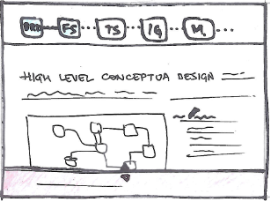 BRD FS TS IG M
HIGH LEVEL CONCEPTUA DESIGN